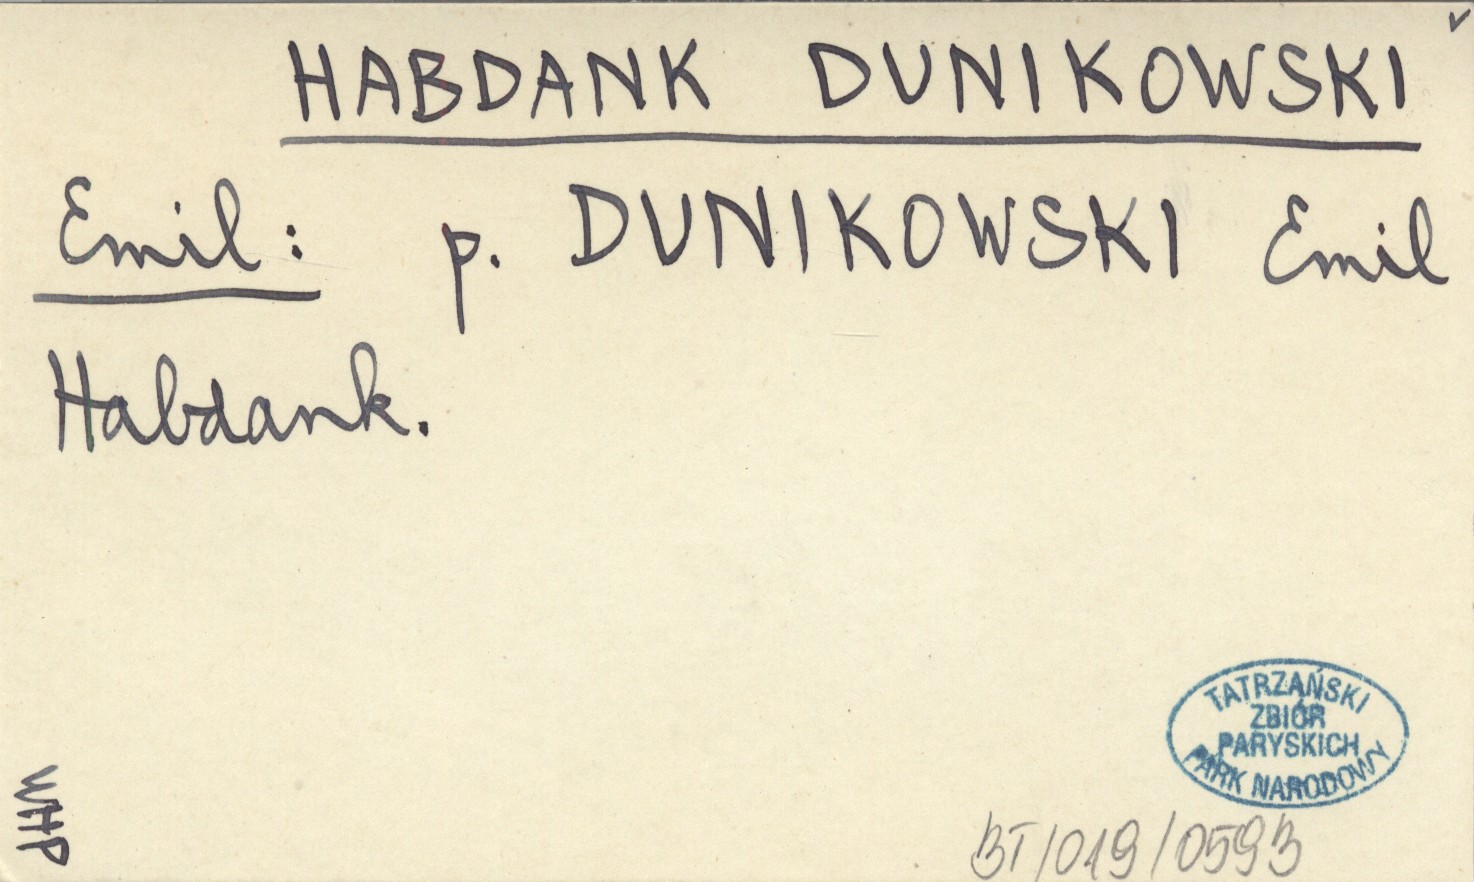 HABDANK DUNIKOWSKI
Emil: p. DUNIKOWSKI Emil
Habdank.
TATRZAŃSKI
ZBIÓR
PARYSKICH
PARK NARODOWY
WHP
BT/019/0593